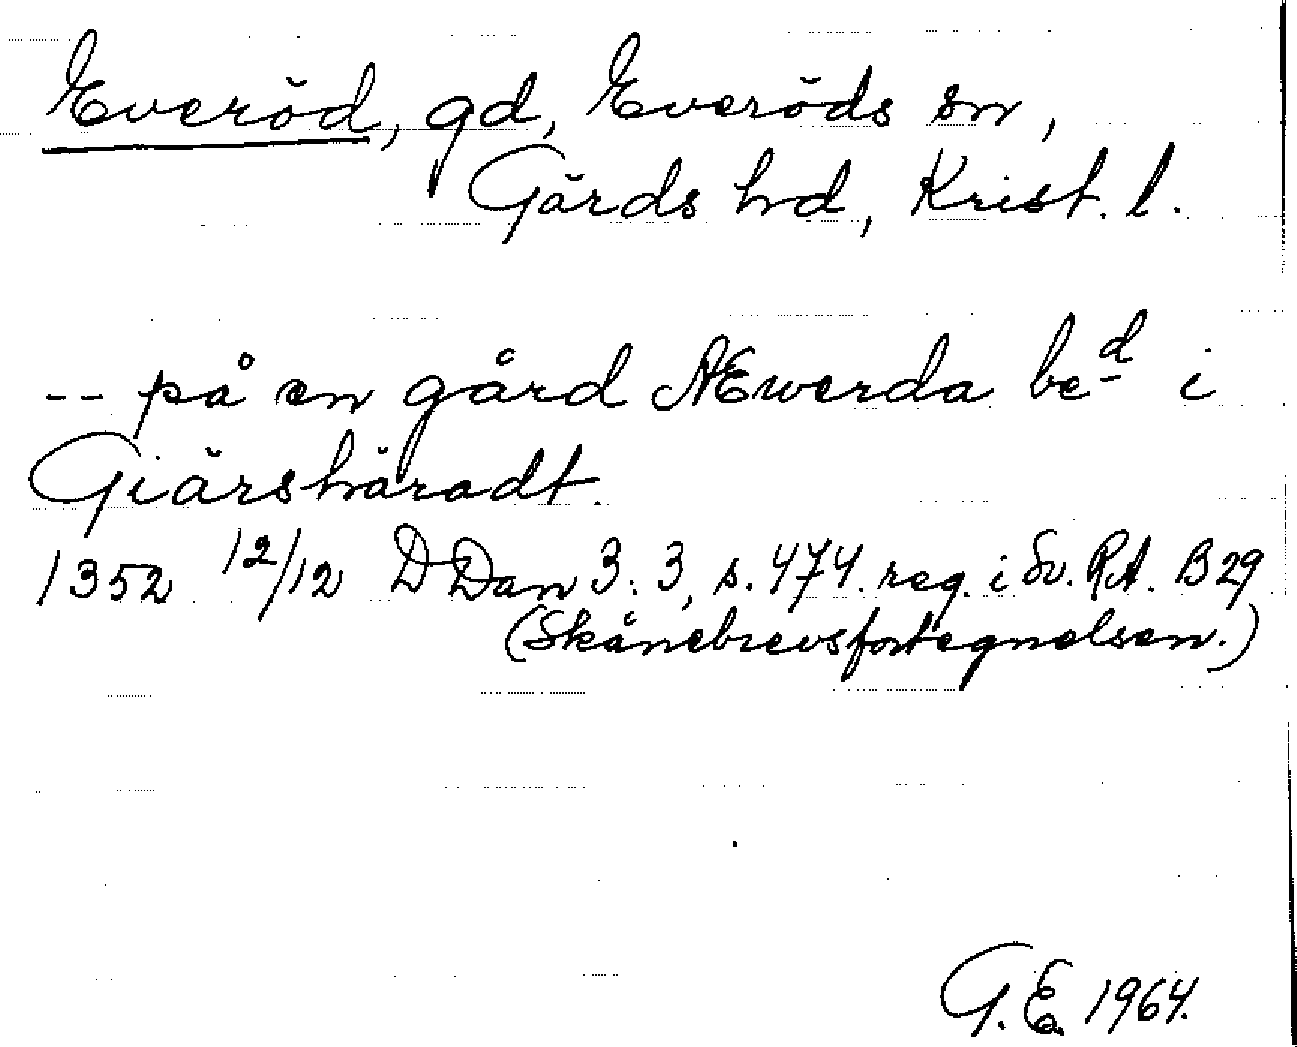 Everöd, gd, Everöds sn,
Gärds hd, Krist. l.
-- på en gård AEwerda be͟ᵈ i
Giärshäradt.
1352 12/12 DDan 3:3, s. 474. reg. i Sv. RA. B 29
(Skånebrevsfortegnelsen.)
G.E. 1964.